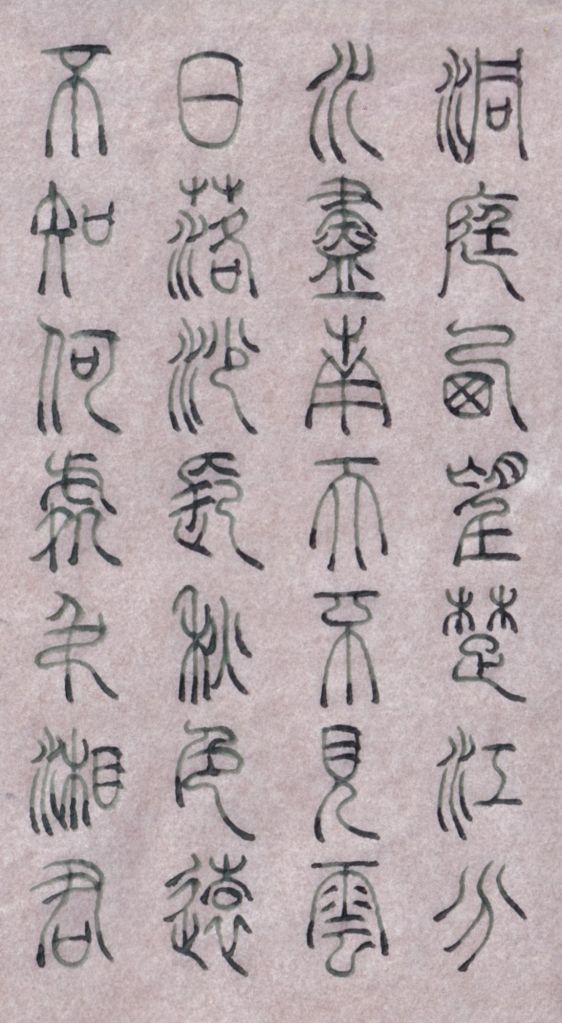 洞庭西望楚江分
水盡南天不見雲
日落沙長秋色遠
不知何處弔湘君